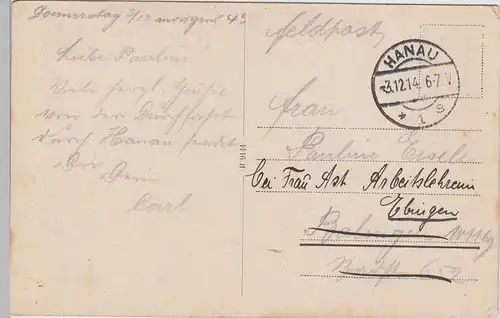 Donnerstag 3/12 morgens 4³
Liebe Pauline
Viele herzl. Grüße
von der Durchfahrt
durch Hanau sendet
Dir
Dein
Carl
R 9144
Feldpost
HANAU
-3.12.14. 6-7.V
* 1 s
Frau
Pauline
bei Frau Ast Arbeitslehrerin
Ebingen
Balingen